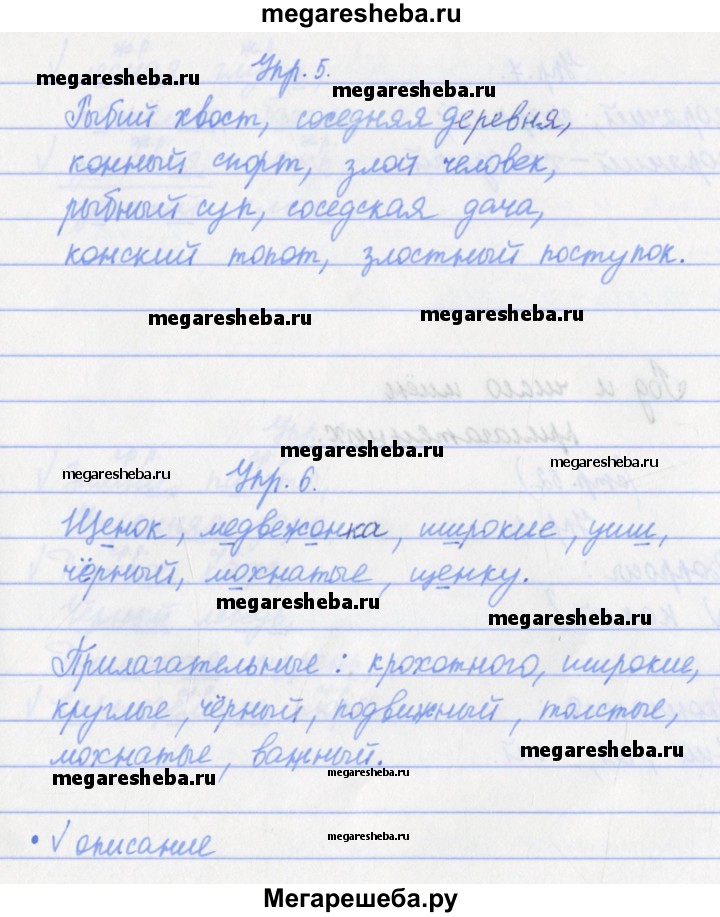 megaresheba.ru
Упр. 5.
megaresheba.ru
megaresheba.ru
Рыбий хвост, соседняя деревня,
конный спорт, злой человек,
рыбный суп, соседская дача,
конский топот, злостный поступок.
megaresheba.ru
megaresheba.ru
Род и число имён
прилагательных.
megaresheba.ru
megaresheba.ru
megaresheba.ru
Упр. 6.
Щенок, медвежонка, широкие, уши,
чёрный, мохнатые, щенку.
megaresheba.ru
megaresheba.ru
Прилагательные: крохотного, широкие,
круглые, чёрный, подвижный, толстые,
мохнатые, важный.
megaresheba.ru
megaresheba.ru
megaresheba.ru
• √ описание
megaresheba.ru
Мегарешеба.ру